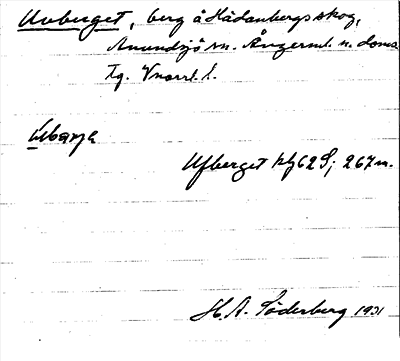 Uvberget, berg å Hädanbergs skog,
Anundsjö sn. Ångerml. n. doms.
tg. Vnorrl. l.
Ubarje
Ufberget hfl 62 S; 267 m.
H. A. Söderberg 1931